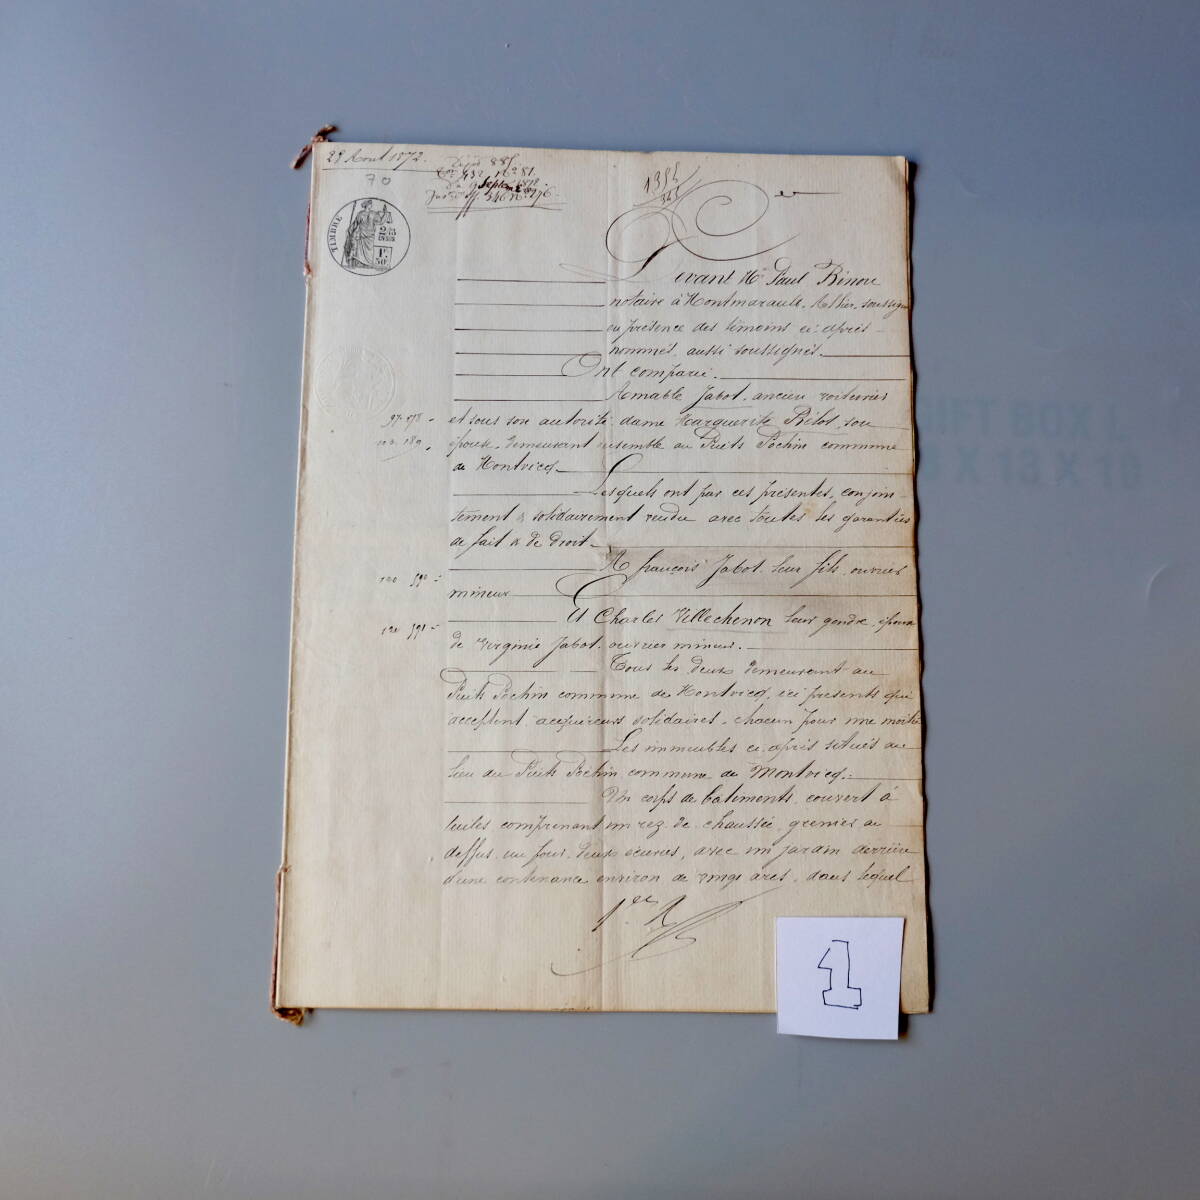 29 Aout 1872.
70
Dépot 885
Septembre
1384
TIMBRE
Devant Me Paul Rénon
notaire à Montmarault, Allier, soussigné
en présence des témoins ci-après
nommés, aussi soussignés.
Ont comparu.
Amable Jabot, ancien voiturier
et sous son autorité dame Marguerite Bilot, son
épouse, demeurant ensemble au Puits Pochin commune
de Montvicq
Lesquels ont par ces présentes, conjoin-
tement & solidairement vendu avec toutes les garanties
de fait & de droit.
A françois Jabot leur fils, ouvrier
mineur
Et Charles Villechenon leur gendre, époux
de Virginie Jabot, ouvrier mineur.
Tous les deux demeurant au
Puits Pochin commune de Montvicq, ici présents qui
acceptent acquéreurs solidaires, chacun pour une moitié
Les immeubles ci après situés au
lieu du Puits Pochin commune de Montvicq.
Un corps de batiments, couvert à
tuiles comprenant un rez de chaussée, grenier au
dessus, un four, deux écuries, avec un jardin derrière
d'une contenance environ de vingt ares, dans lequel
1er R
1
GIFT BOX L
X 13 X 16